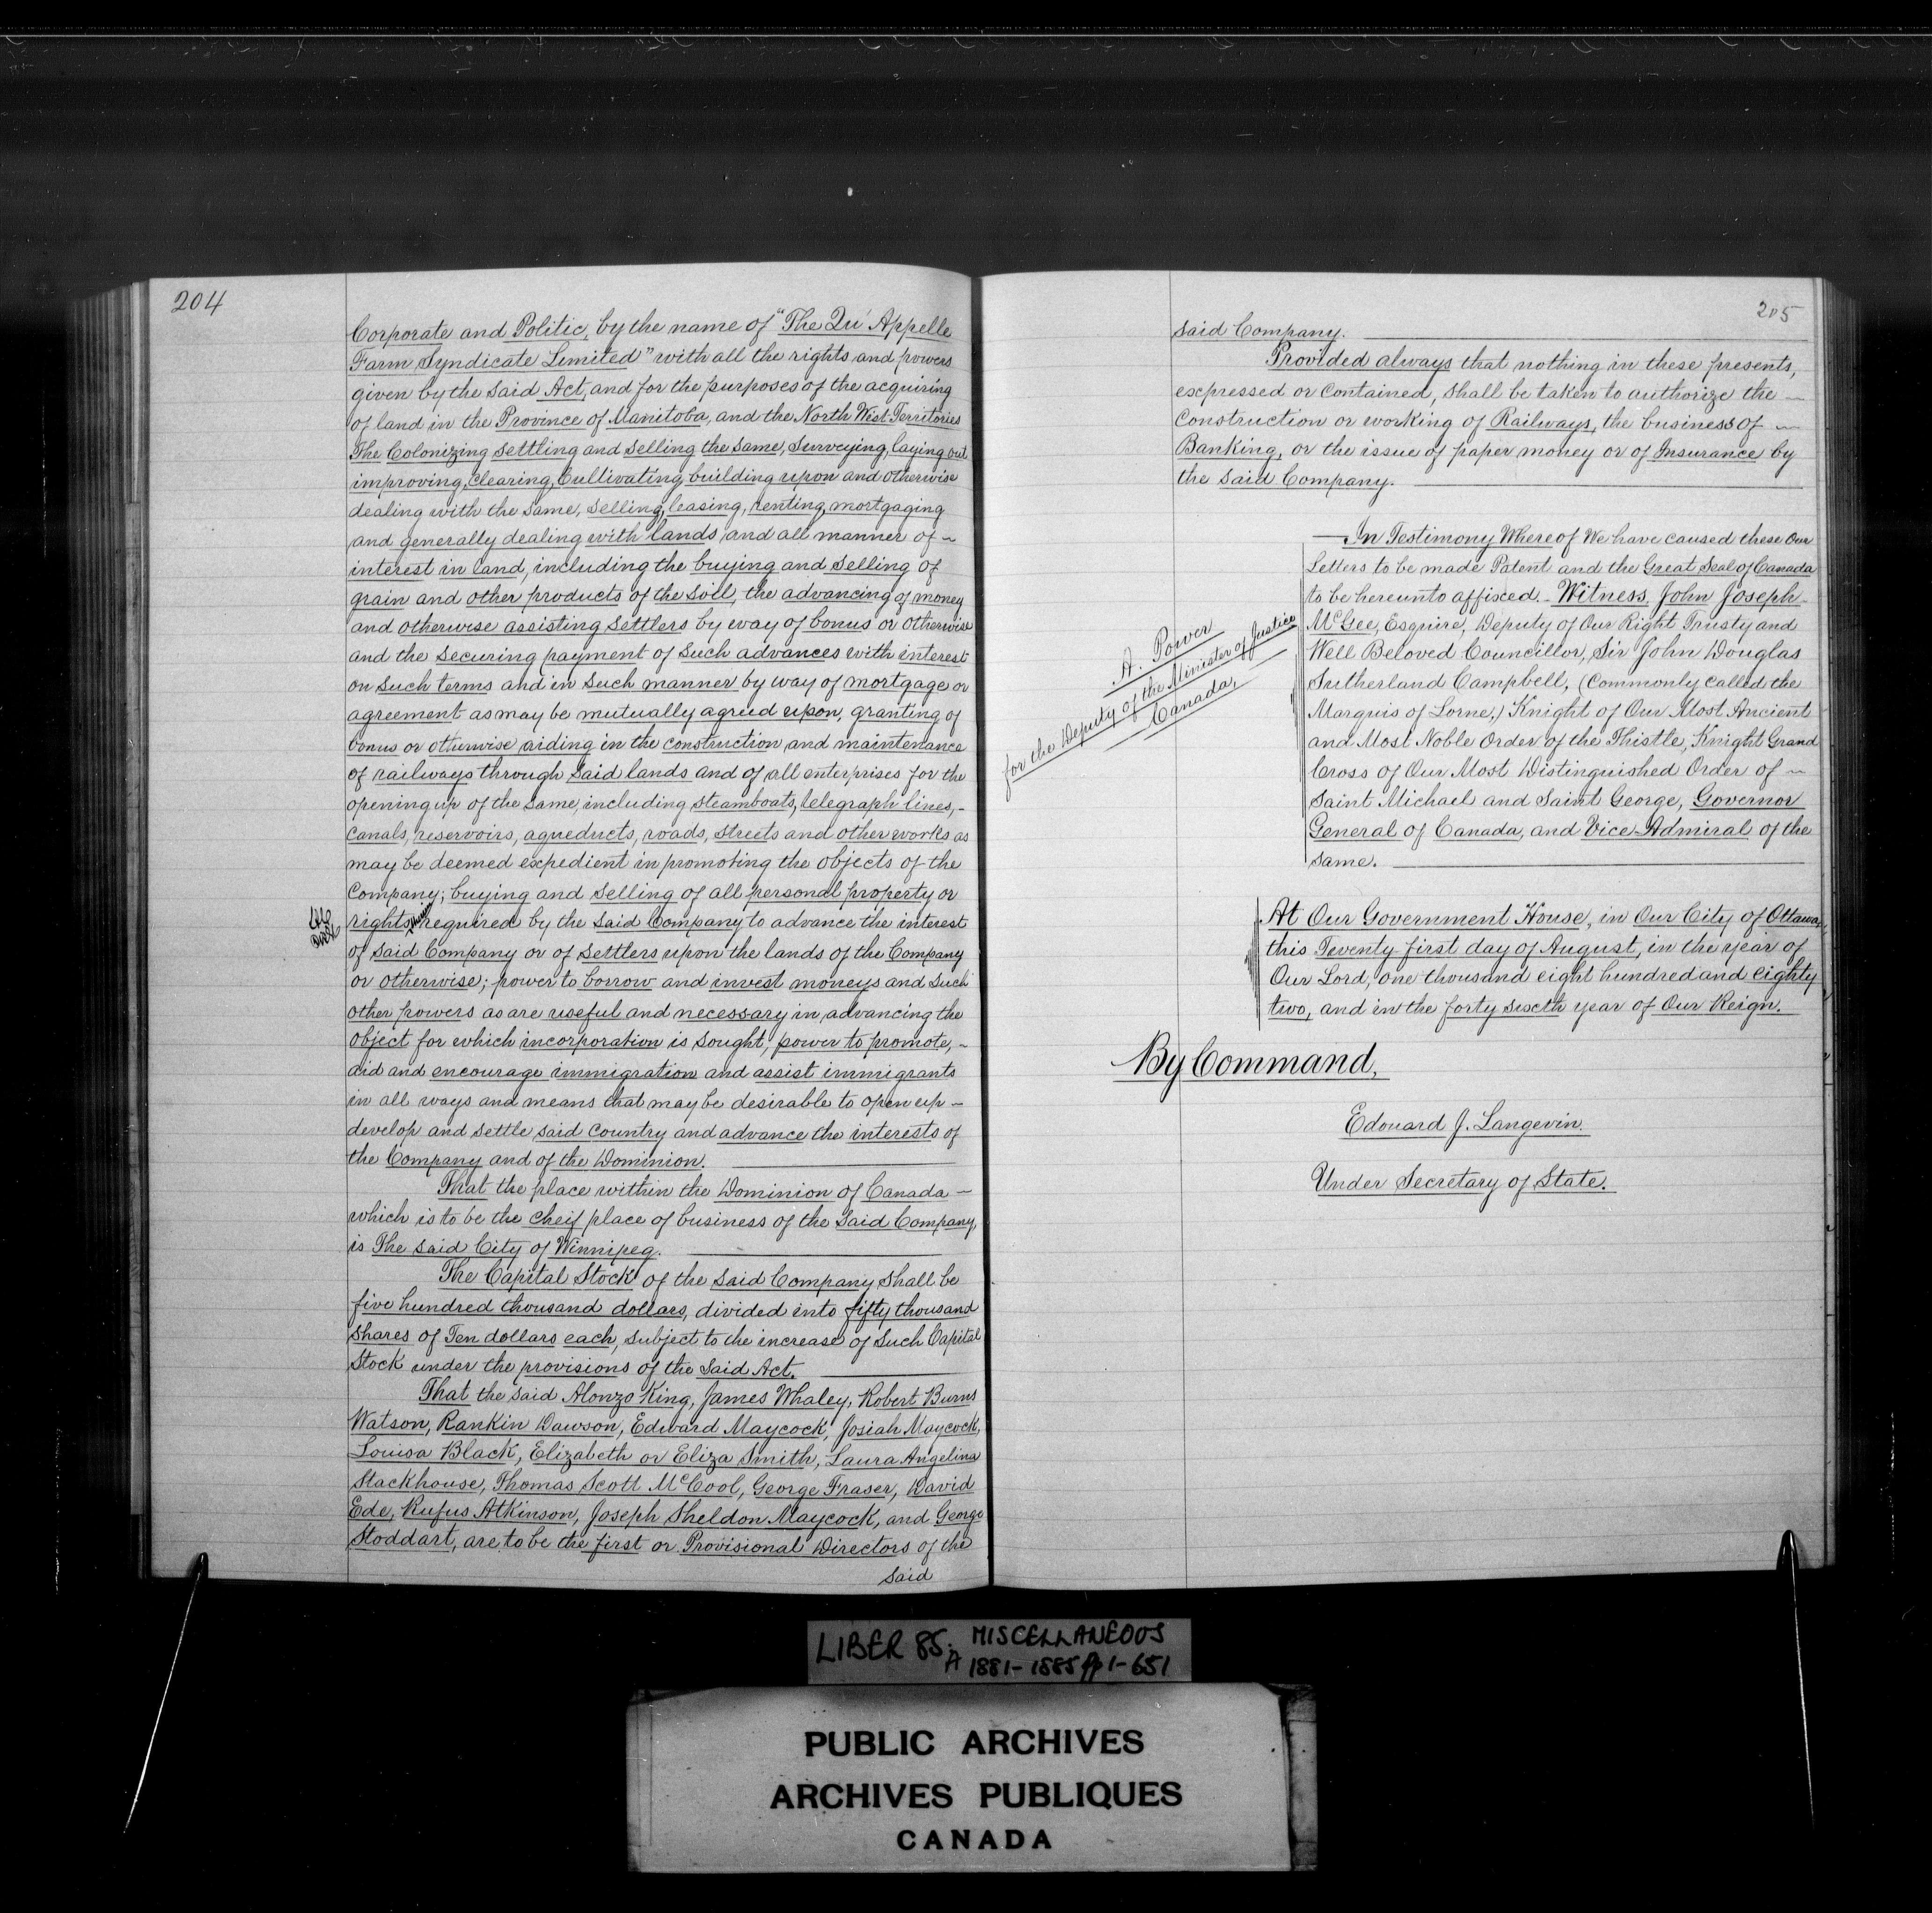 204
Corporate and Politic, by the name of "The Qu'Appelle
Farm Syndicate Limited" with all the rights and powers
given by the said Act, and for the purposes of the acquiring
of land in the Province of Manitoba, and the North West Territories
The Colonizing settling and selling the same, surveying, laying out
improving, clearing, Cultivating, building upon and otherwise
dealing with the same, selling, leasing, renting, mortgaging
and generally dealing with lands and all manner of ~
interest in land, including the buying and selling of
grain and other products of the soil, the advancing of money
and otherwise assisting settlers by way of bonus or otherwise
and the securing payment of such advances with interest
on such terms and in such manner by way of mortgage or
agreement as may be mutually agreed upon, granting of
bonus or otherwise aiding in the construction and maintenance
of railways through said lands and of all enterprises for the
opening up of the same, including steamboats, telegraph lines, -
canals, reservoirs, aqueducts, roads, streets and other works as
may be deemed expedient in promoting the objects of the
Company; buying and selling of all personal property or
rights required by the said Company to advance the interest
of said Company or of settlers upon the lands of the Company
or otherwise; power to borrow and invest moneys and such
other powers as are useful and necessary in advancing the
object for which incorporation is sought, power to promote, -
aid and encourage immigration and assist immigrants
in all ways and means that may be desirable to open up -
develop and settle said country and advance the interests of
the Company and of the Dominion.
That the place within the Dominion of Canada -
which is to be the cheif place of business of the said Company,
is The said City of Winnipeg.
The Capital Stock of the said Company shall be
five hundred thousand dollars, divided into fifty thousand
shares of Ten dollars each, subject to the increase of such Capital
Stock under the provisions of the said Act.
That the said Alonzo King, James Whaley, Robert Burns
Watson, Rankin Dawson, Edward Maycock, Josiah Maycock,
Louisa Black, Elizabeth or Eliza Smith, Laura Angelina
Stackhouse, Thomas Scott McCool, George Fraser, David
Ede, Rufus Atkinson, Joseph Sheldon Maycock, and George
Stoddart, are to be the first or Provisional Directors of the
said
205
said Company.
Provided always that nothing in these presents,
expressed or contained, shall be taken to authorize the ~
Construction or working of Railways, the business of ~
Banking, or the issue of paper money or of Insurance by
the said Company.
In Testimony Whereof We have caused these Our
Letters to be made Patent and the Great Seal of Canada
to be hereunto affixed. - Witness, John Joseph -
McGee, Esquire, Deputy of Our Right Trusty and
Well Beloved Councillor, Sir John Douglas
Sutherland Campbell, (Commonly called the
Marquis of Lorne,) Knight of Our Most Ancient
and Most Noble Order of the Thistle, Knight Grand
Cross of Our Most Distinguished Order of ~
Saint Michael and Saint George, Governor
General of Canada, and Vice-Admiral of the
same.
A. Power
for the Deputy of the Minister of Justice
Canada,
At Our Government House, in Our City of Ottawa,
this Twenty first day of August, in the year of
Our Lord, one thousand eight hundred and eighty
two, and in the forty sixth year of Our Reign.
By Command,
Edouard J. Langevin
Under Secretary of State.
LIBER 85; MISCELLANEOUS
A 1881-1885 pp 1-651
PUBLIC ARCHIVES
ARCHIVES PUBLIQUES
CANADA